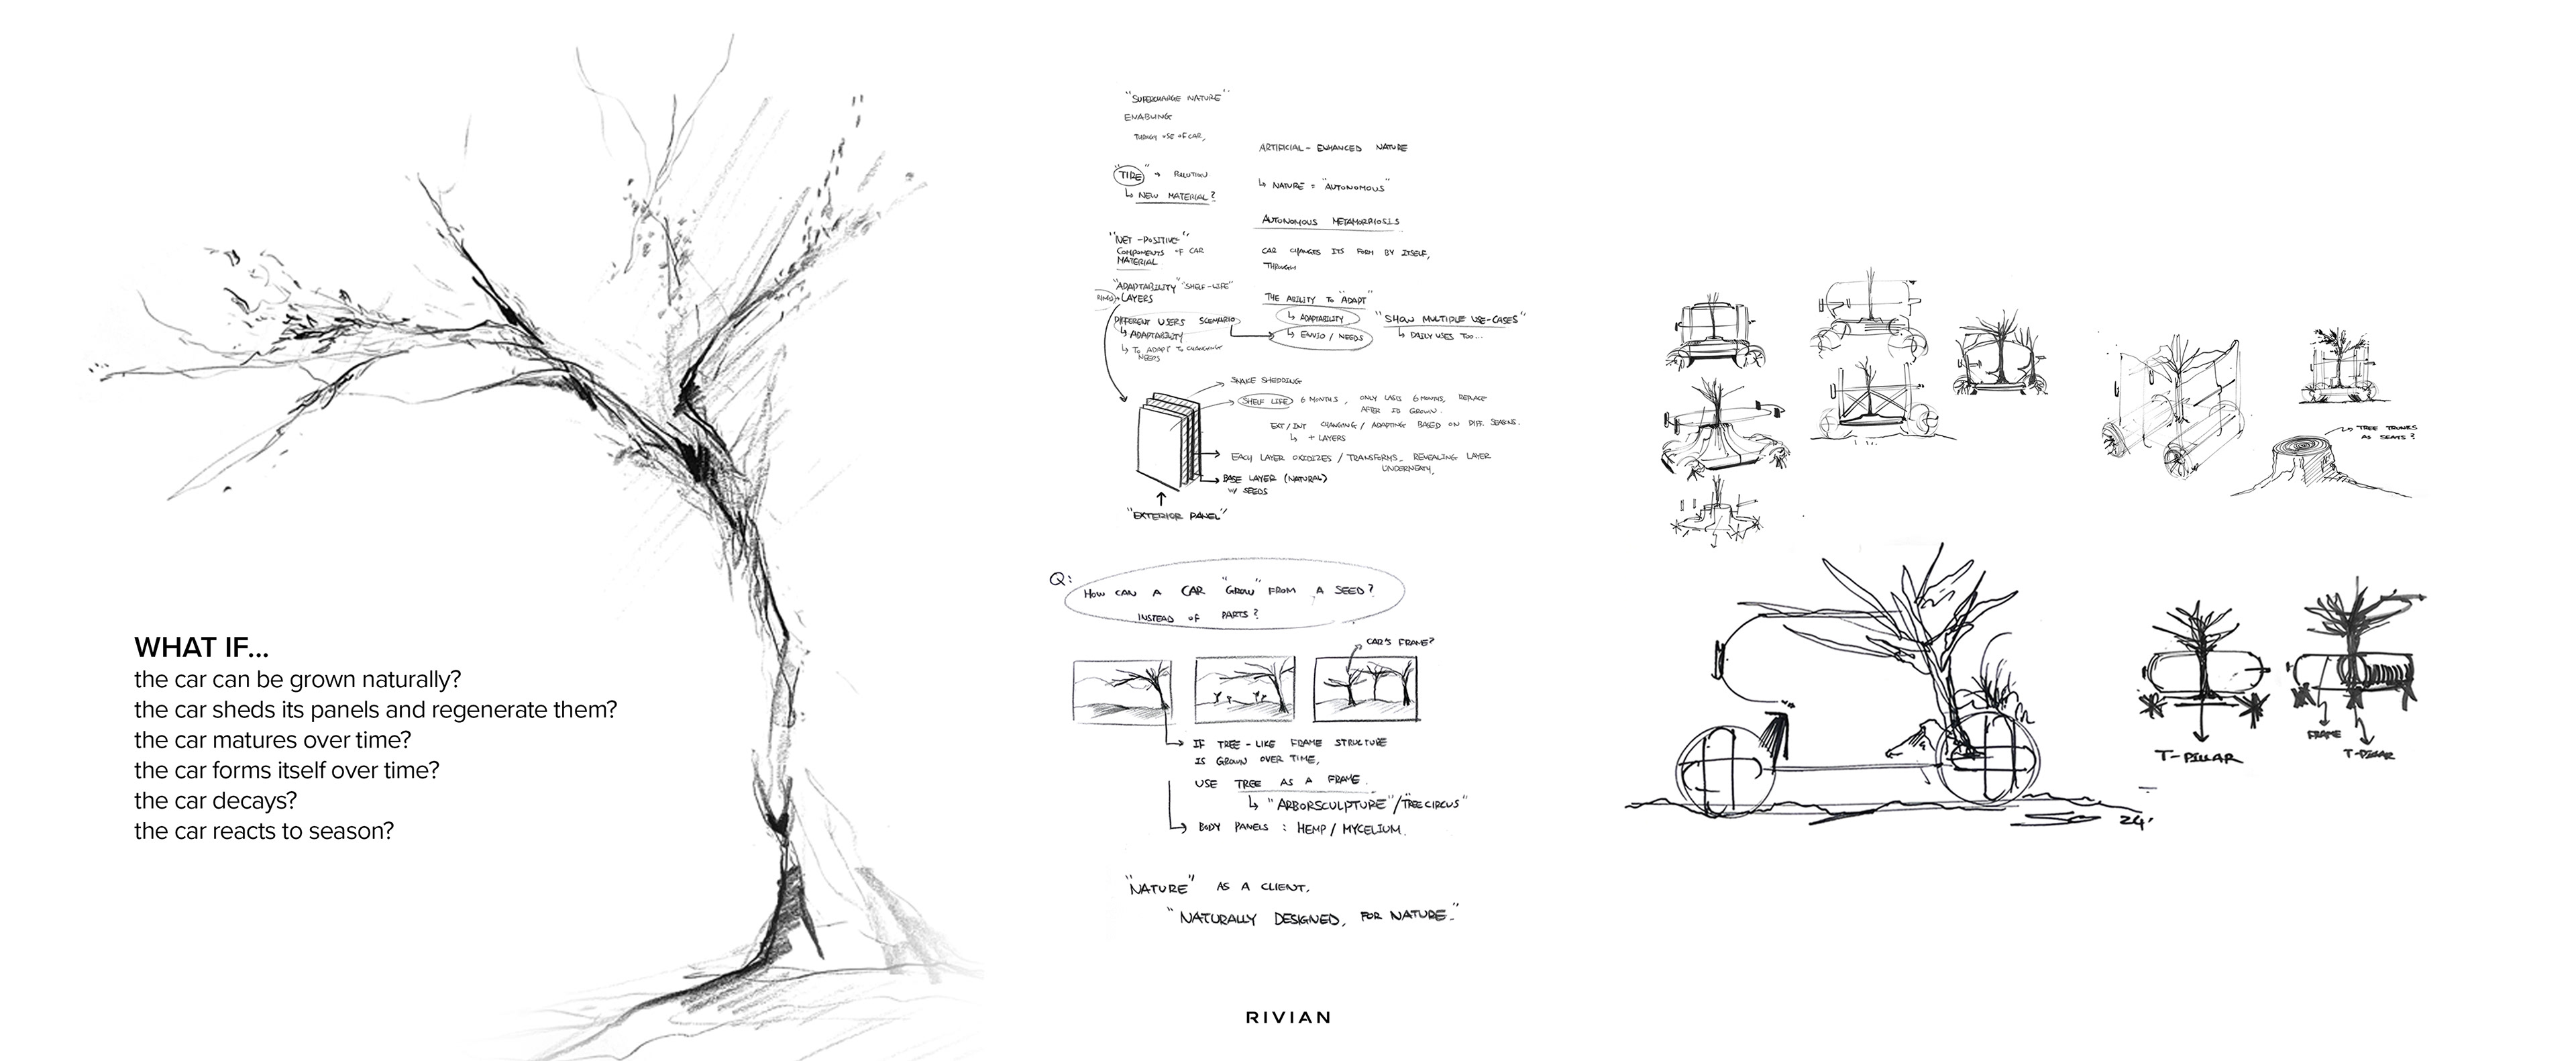 WHAT IF...
the car can be grown naturally?
the car sheds its panels and regenerate them?
the car matures over time?
the car forms itself over time?
the car decays?
the car reacts to season?
"SUPERCHARGE NATURE"
ENABLING
THROUGH USE OF CAR,
"TIRE" → POLLUTION
↳ NEW MATERIAL?
"NET-POSITIVE"
COMPONENTS OF CAR
MATERIAL
"ADAPTABILITY" "SHELF-LIFE"
LAYERS
DIFFERENT USERS SCENARIO
↳ ADAPTABILITY
↳ TO ADAPT TO CHANGING
NEEDS
ARTIFICIAL - ENHANCED NATURE
↳ NATURE = "AUTONOMOUS"
AUTONOMOUS METAMORPHOSIS
CAR CHANGES ITS FORM BY ITSELF,
THROUGH
THE ABILITY TO "ADAPT"
↳ ADAPTABILITY
ENVIO / NEEDS
"SHOW MULTIPLE USE-CASES"
↳ DAILY USES TOO...
SNAKE SHEDDING
SHELF LIFE 6 MONTHS, ONLY LASTS 6 MONTHS, REPLACE
AFTER GROWN.
EXT/INT CHANGING / ADAPTING BASED ON DIFF. SEASONS.
↳ + LAYERS
EACH LAYER OXIDIZES / TRANSFORMS_ REVEALING LAYER
UNDERNEATH,
BASE LAYER (NATURAL)
W/ SEEDS
"EXTERIOR PANEL"
Q:
HOW CAN A CAR "GROW" FROM A SEED?
INSTEAD OF PARTS?
CAR'S FRAME?
IF TREE-LIKE FRAME STRUCTURE
IS GROWN OVER TIME,
USE TREE AS A FRAME.
↳ "ARBORSCULPTURE"/"TREE CIRCUS"
BODY PANELS : HEMP / MYCELIUM.
"NATURE" AS A CLIENT,
"NATURALLY DESIGNED, FOR NATURE."
RIVIAN
TREE TRUNKS
AS SEATS?
T-PILLAR
FRAME
T-PILLAR
24'